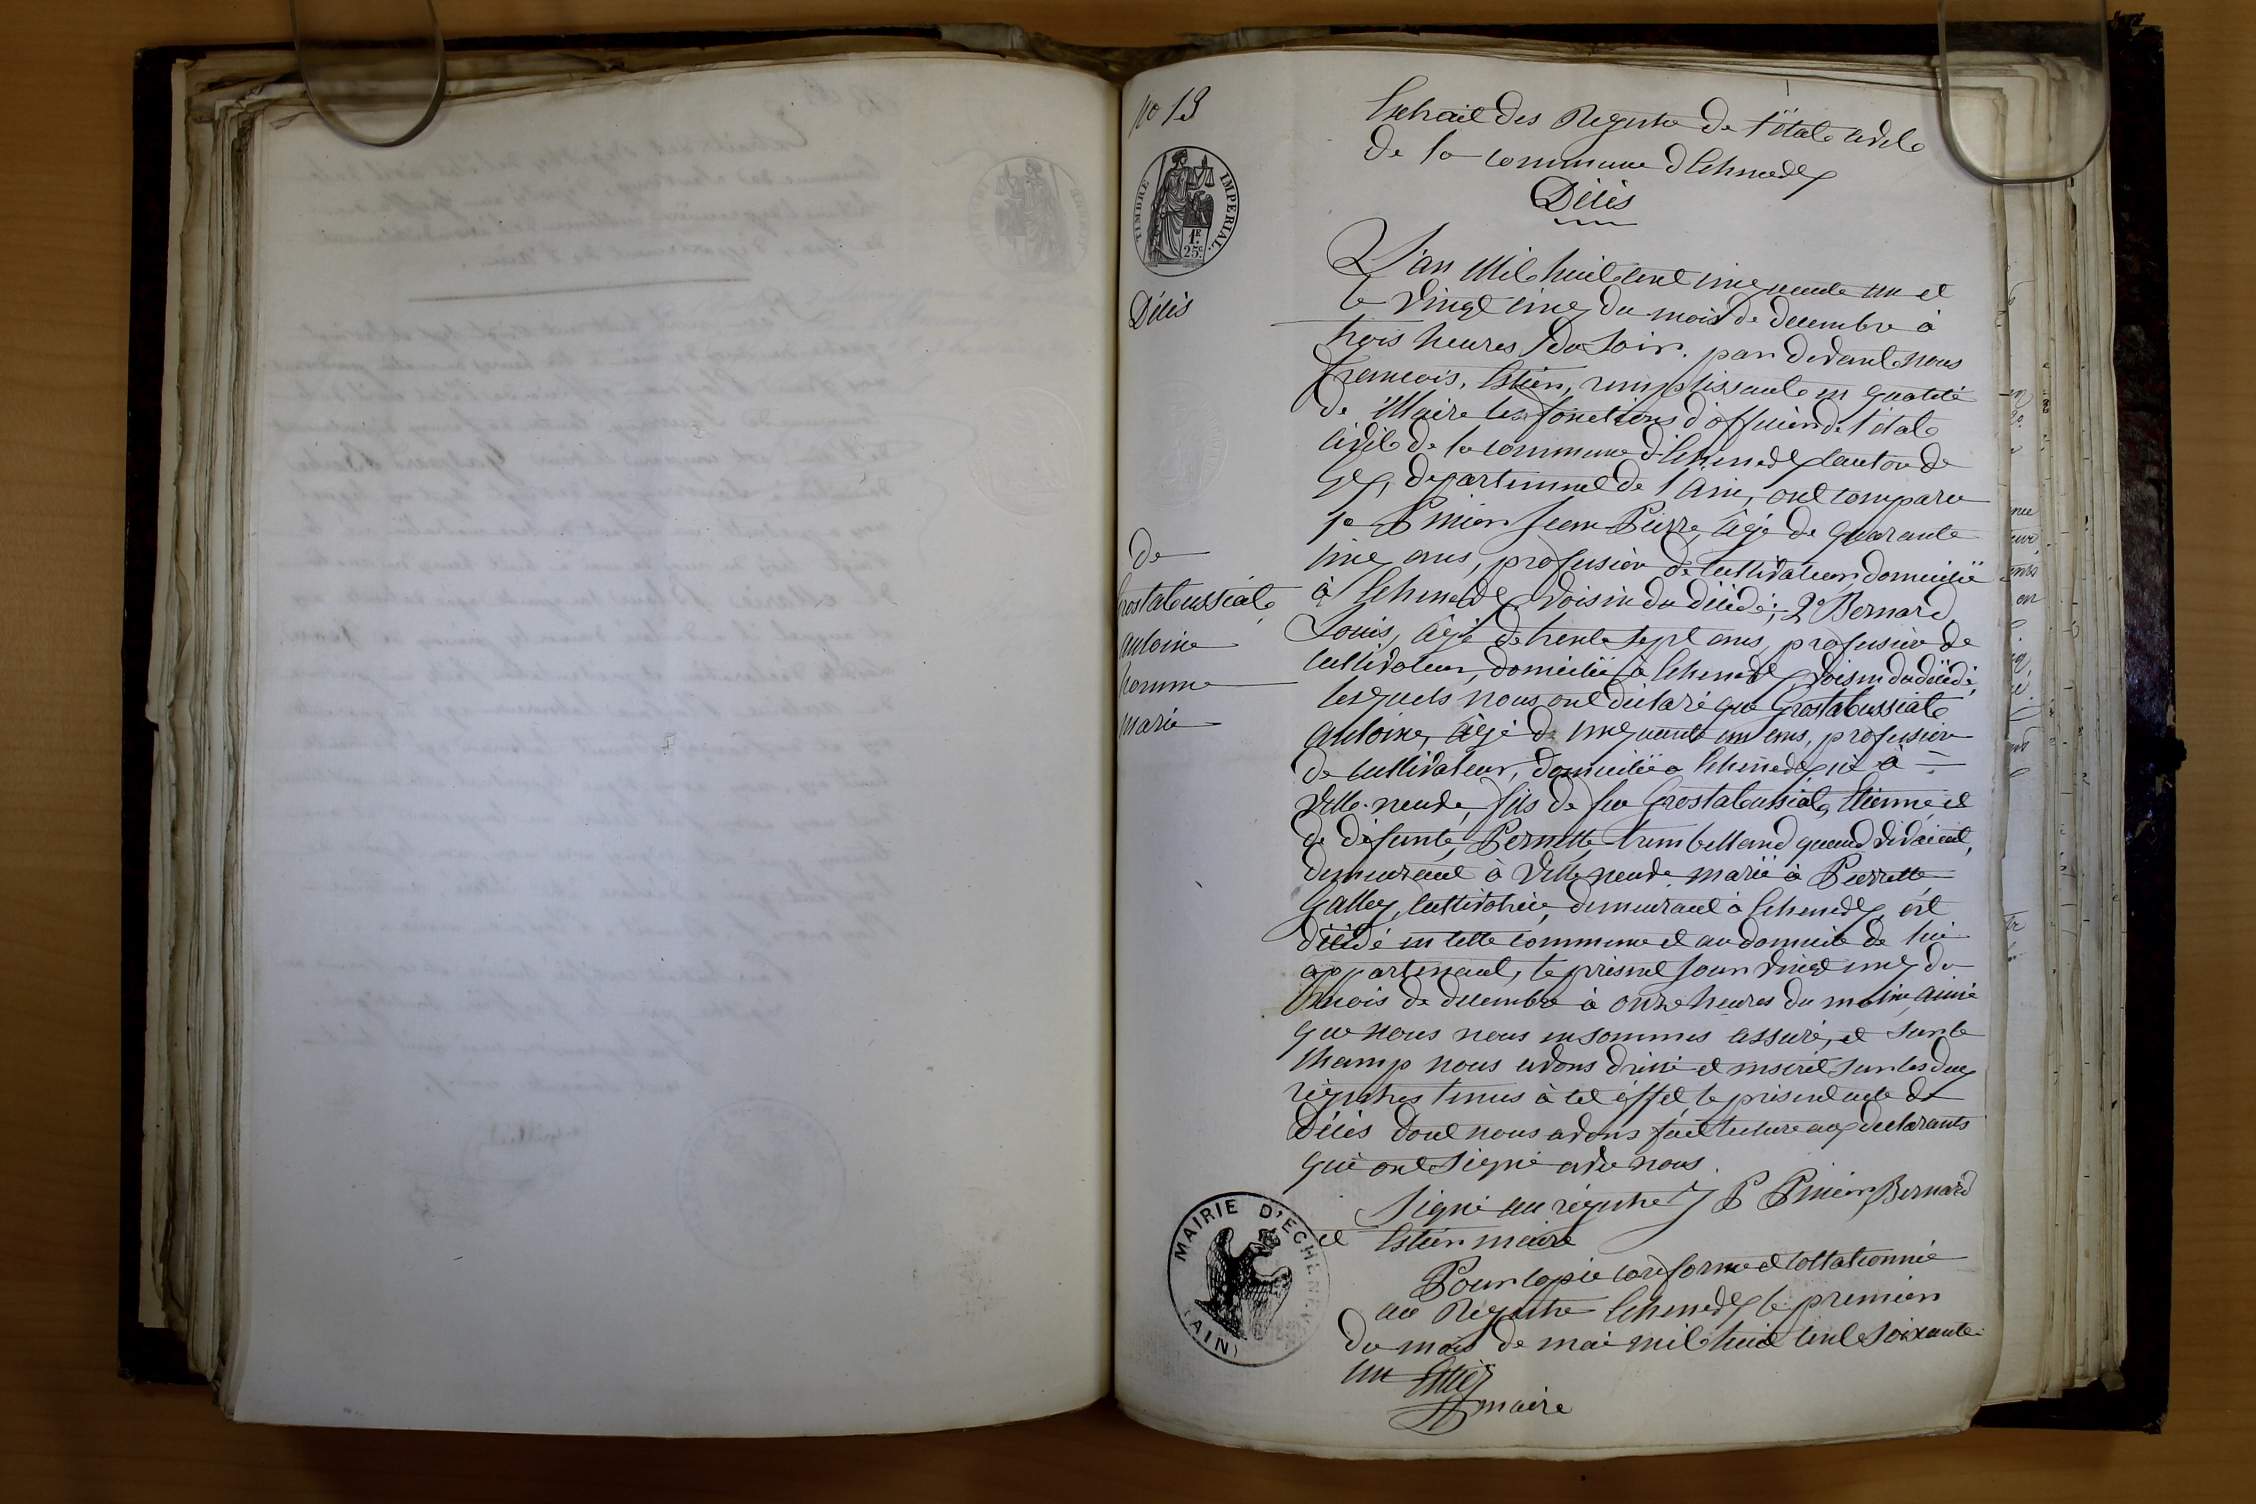 no 13
Extrait des Registre de l'état civil
de la commune d'Echenevex
Décès
TIMBRE IMPERIAL.
1F.
25c.
Décès
de
Grostabussiat
antoine
homme
marié
L'an Mil huit cent cinquante un et
le vingt cinq du mois de decembre à
trois heures du soir. par devant nous
François, Estier, remplissant en qualité
de Maire les fonctions d'officier de l'état
civil de la commune d'Echenevex canton de
Gex, departement de l'Ain, ont comparu
1o Pinier Jean Pierre, âgé de quarante
cinq ans, profession de cultivateur domicilié
à Echenevex voisin du décédé; 2o Bernard
Louis, âgé de trente sept ans, profession de
cultivateur, domicilié à Echenevex voisin du décédé;
lesquels nous ont déclaré que Grostabussiat
antoine, âgé de cinquante un ans, profession
de cultivateur, domicilié a Echenevex né à
Ville-neuve, fils de feu Grostabussiat, Etienne, et
de défunte, Pernette, Trumbelland quand vivaient,
demeurant à Ville neuve marié à Pierrette
Galley, cultivatrice, demeurant à Echenevex, est
décédé en cette commune et au domicile de lui
appartenant, le présent jour vingt cinq du
mois de decembre à onze heures du matin, ainsi
que nous nous en sommes assuré, et sur le
champ nous avons drèssé et inscrit sur les deux
régistres tenus à cet éffet le présent acte de
Décès dont nous avons fait lecture aux declarants
qui ont signé avec nous.
Signé au régistre J P Pinier, Bernard
et Estier maire
Pour copie conforme et collationnée
au Régistre Echenevex le premier
du mois de mai mil huit cent soixante
un Estier
maire
MAIRIE D'ECHENEVEX
(AIN)